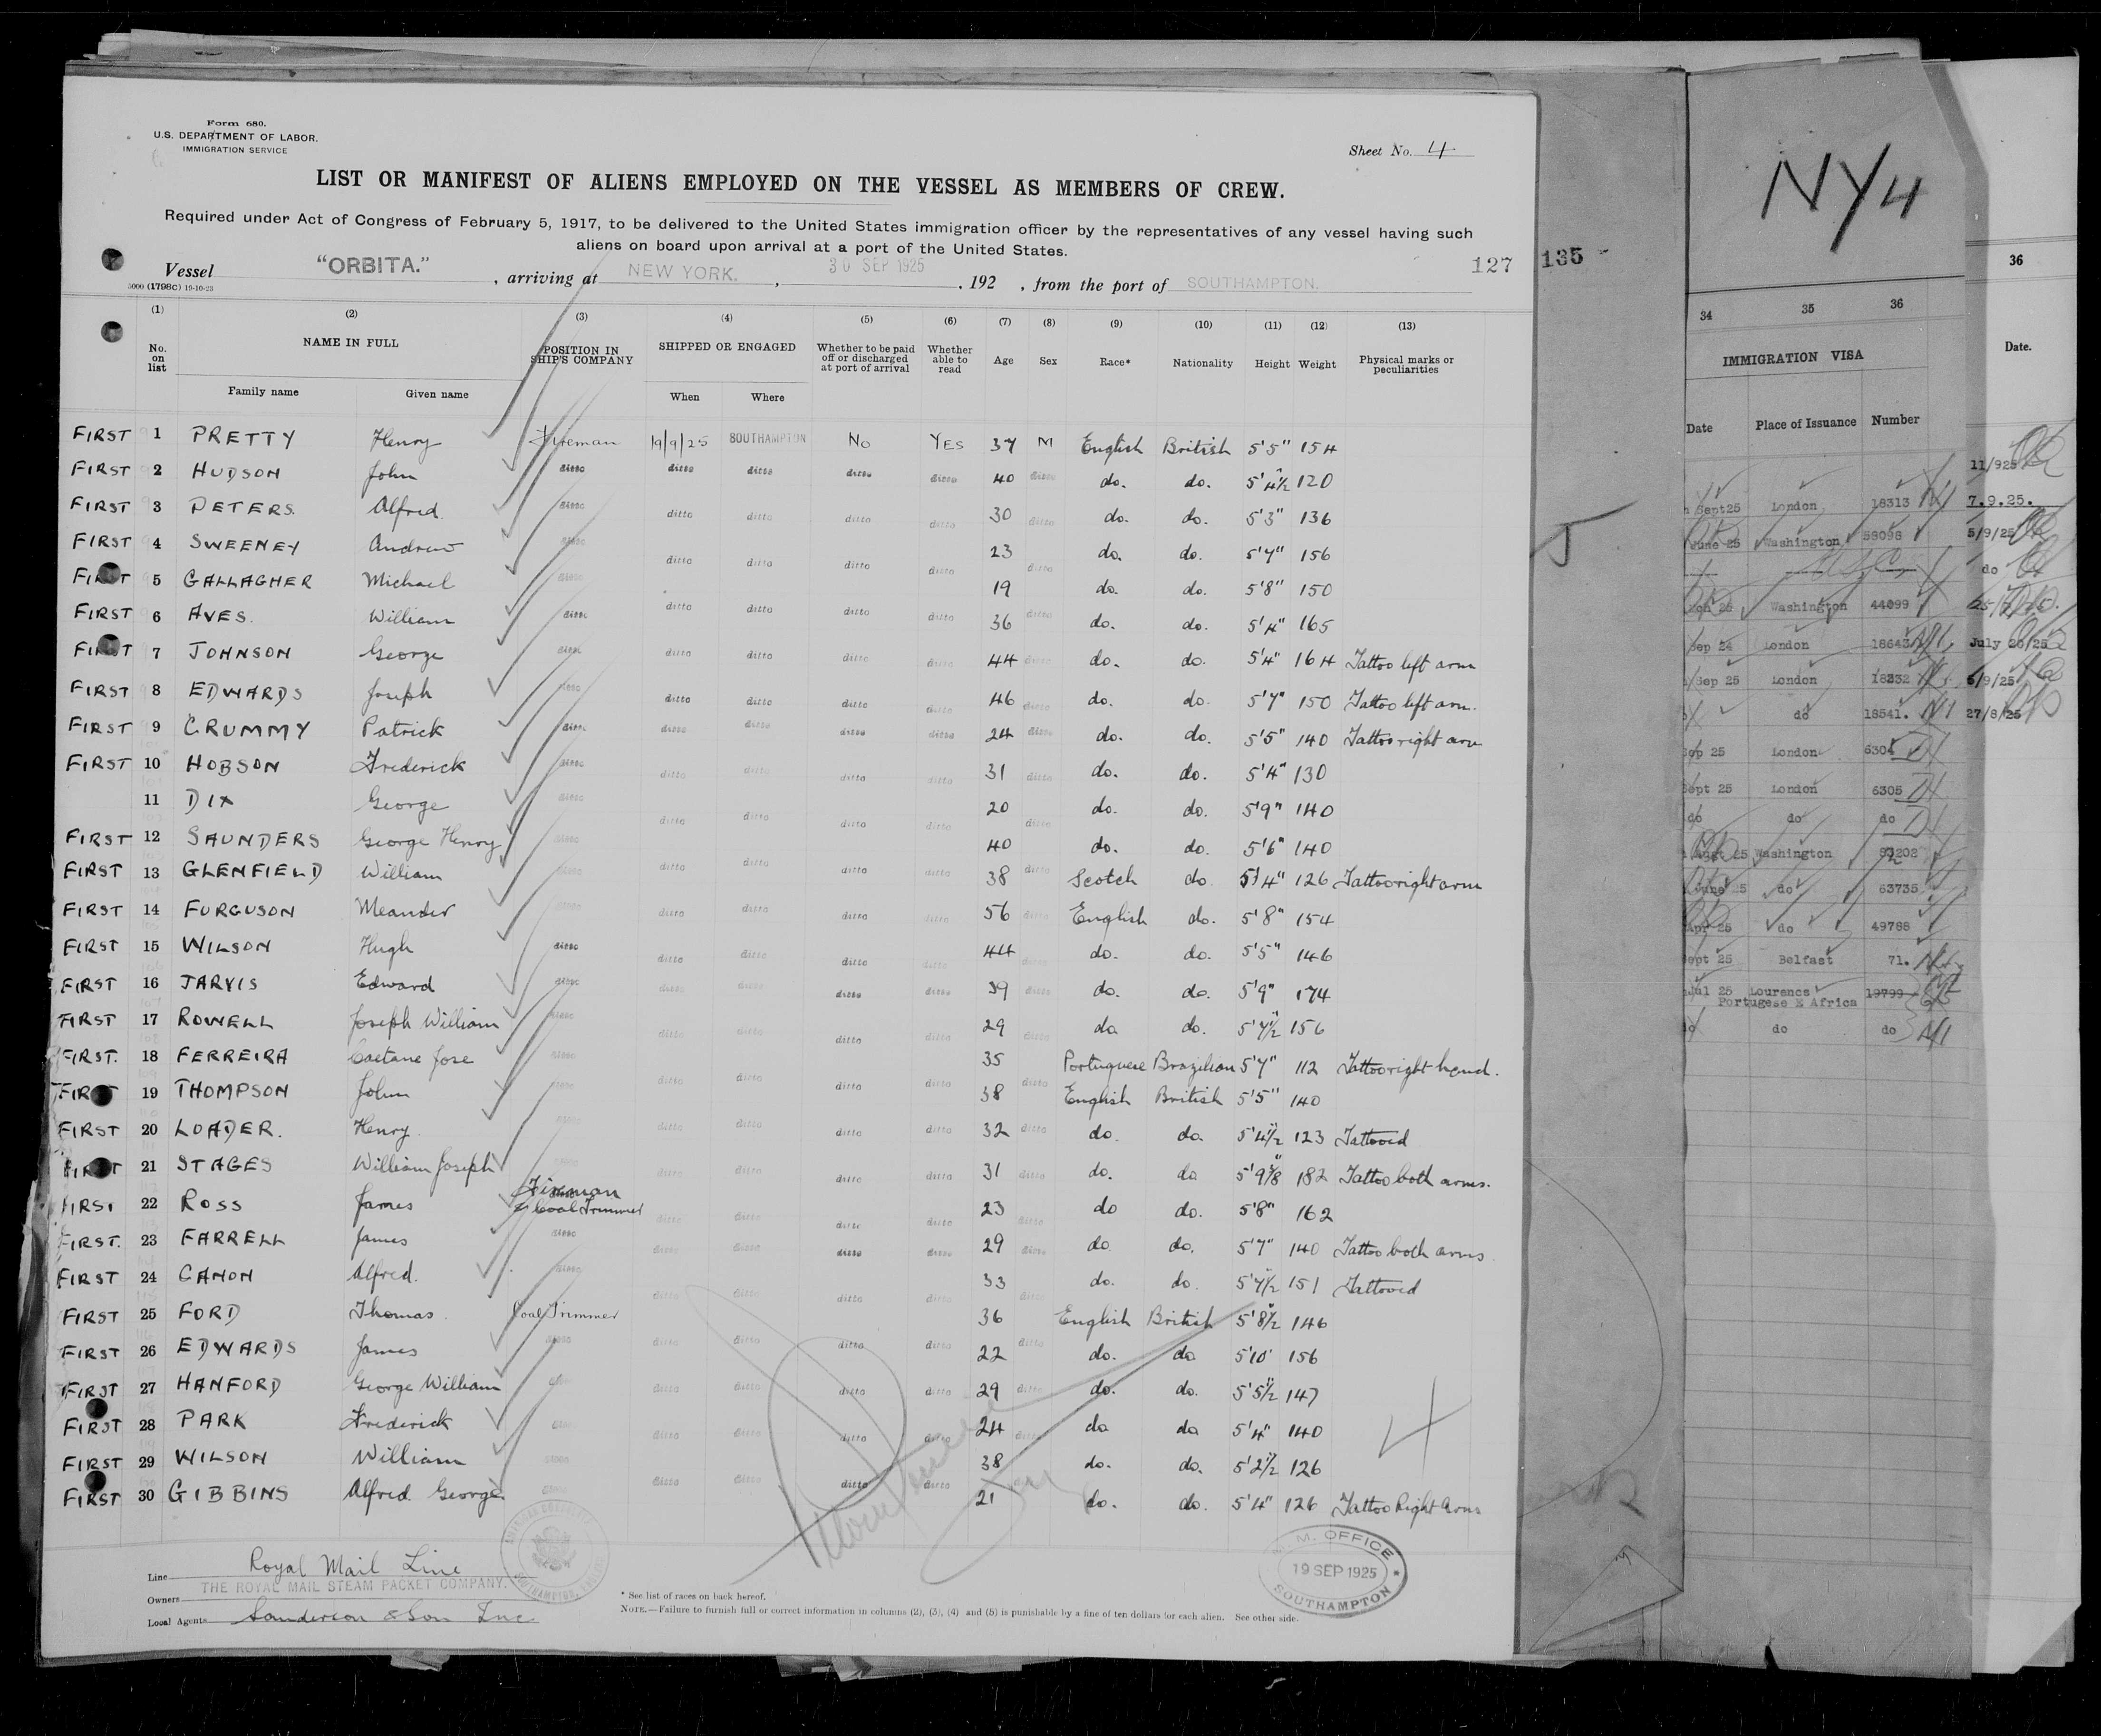 Form 680.
U.S. DEPARTMENT OF LABOR.
IMMIGRATION SERVICE
Sheet No. 4
LIST OR MANIFEST OF ALIENS EMPLOYED ON THE VESSEL AS MEMBERS OF CREW.
Required under Act of Congress of February 5, 1917, to be delivered to the United States immigration officer by the representatives of any vessel having such
aliens on board upon arrival at a port of the United States.
Vessel "ORBITA." , arriving at NEW YORK. , 30 SEP 1925 , 192 , from the port of SOUTHAMPTON. 127
5000 (1798c) 19-10-23
(1) (2) (3) (4) (5) (6) (7) (8) (9) (10) (11) (12) (13)
No. on list NAME IN FULL POSITION IN SHIP'S COMPANY SHIPPED OR ENGAGED Whether to be paid off or discharged at port of arrival Whether able to read Age Sex Race* Nationality Height Weight Physical marks or peculiarities
Family name Given name When Where
FIRST 1 PRETTY Henry Fireman 19/9/25 SOUTHAMPTON NO YES 37 M English British 5'5" 154
FIRST 2 HUDSON John ditto ditto ditto ditto ditto 40 ditto do. do. 5'4½" 120
FIRST 3 PETERS Alfred. ditto ditto ditto ditto ditto 30 ditto do. do. 5'3" 136
FIRST 4 SWEENEY Andrew ditto ditto ditto ditto ditto 23 ditto do. do. 5'7" 156
FIRST 5 GALLAGHER Michael 19 do. do. 5'8" 150
FIRST 6 AVES. William ditto ditto ditto ditto ditto 36 ditto do. do. 5'4" 165
FIRST 7 JOHNSON George ditto ditto ditto ditto ditto 44 ditto do. do. 5'4" 164 Tattoo left arm
FIRST 8 EDWARDS Joseph ditto ditto ditto ditto ditto 46 ditto do. do. 5'7" 150 Tattoo left arm.
FIRST 9 CRUMMY Patrick ditto ditto ditto ditto ditto 24 ditto do. do. 5'5" 140 Tattoo right arm
FIRST 10 HOBSON Frederick ditto ditto ditto ditto ditto 31 ditto do. do. 5'4" 130
11 DIX George ditto 20 do. do. 5'9" 140
FIRST 12 SAUNDERS George Henry ditto ditto ditto ditto ditto 40 ditto do. do. 5'6" 140
FIRST 13 GLENFIELD William ditto ditto ditto ditto ditto 38 ditto Scotch do. 5'4" 126 Tattoo right arm
FIRST 14 FURGUSON Meander ditto ditto ditto ditto ditto 56 ditto English do. 5'8" 154
FIRST 15 WILSON Hugh ditto ditto ditto ditto ditto 44 ditto do. do. 5'5" 146
FIRST 16 JARVIS Edward ditto ditto ditto ditto ditto 39 ditto do. do. 5'9" 174
FIRST 17 ROWELL Joseph William ditto ditto ditto ditto ditto 29 ditto do. do. 5'7½" 156
FIRST. 18 FERREIRA Caetane Jose ditto 35 Portuguese Brazilian 5'7" 112 Tattoo right hand.
FIRST 19 THOMPSON John ditto ditto ditto ditto ditto 38 ditto English British 5'5" 140
FIRST 20 LOADER. Henry. ditto ditto ditto ditto ditto 32 ditto do. do. 5'4½" 123 Tattooed
FIRST 21 STAGES William Joseph ditto ditto ditto ditto ditto 31 ditto do. do 182 Tattoo both arms.
FIRST 22 ROSS James Fireman & Coal Trimmer ditto ditto ditto ditto 23 ditto do do. 5'8" 162
FIRST. 23 FARRELL James ditto ditto ditto ditto ditto 29 ditto do. do. 5'7" 140 Tattoo both arms.
FIRST 24 CANON Alfred. ditto ditto ditto ditto ditto 33 do. do. 5'7½" 151 Tattooed
FIRST 25 FORD Thomas. Coal Trimmer 36 English British 5'8½" 146
FIRST 26 EDWARDS James ditto ditto ditto ditto ditto 22 ditto do. do 5'10" 156
FIRST 27 HANFORD George William ditto ditto ditto ditto ditto 29 ditto do. do. 5'5½" 147
FIRST 28 PARK Frederick ditto ditto ditto ditto ditto 24 ditto do do 5'4" 140
FIRST 29 WILSON William ditto 38 do. do. 5'2½" 126
FIRST 30 GIBBINS Alfred George ditto ditto ditto ditto ditto 21 ditto do. do. 5'4" 126 Tattoo Right Arm
4
Line Royal Mail Line
Owners THE ROYAL MAIL STEAM PACKET COMPANY.
Local Agents Sanderson & Son Inc
* See list of races on back hereof.
NOTE.—Failure to furnish full or correct information in columns (2), (3), (4) and (5) is punishable by a fine of ten dollars for each alien. See other side.
M. M. OFFICE
19 SEP 1925
SOUTHAMPTON
135
NY4
34 35 36
IMMIGRATION VISA
Date Place of Issuance Number
Sept25 London 18313
June 25 Washington 58098
USC
25 Washington 44099
Sep 24 London 18643
Sep 25 London 18332
do 18541.
Sep 25 London 6304
Sept 25 London 6305
do do do
Augt 25 Washington
June 25 do 63735
Apr 25 do 49788
Sept 25 Belfast 71.
Jul 25 Lourenco 19799
Portugese E Africa
do do do
36
Date.
11/925
7.9.25.
5/9/25
do
July 20/25
6/9/25
27/8/25